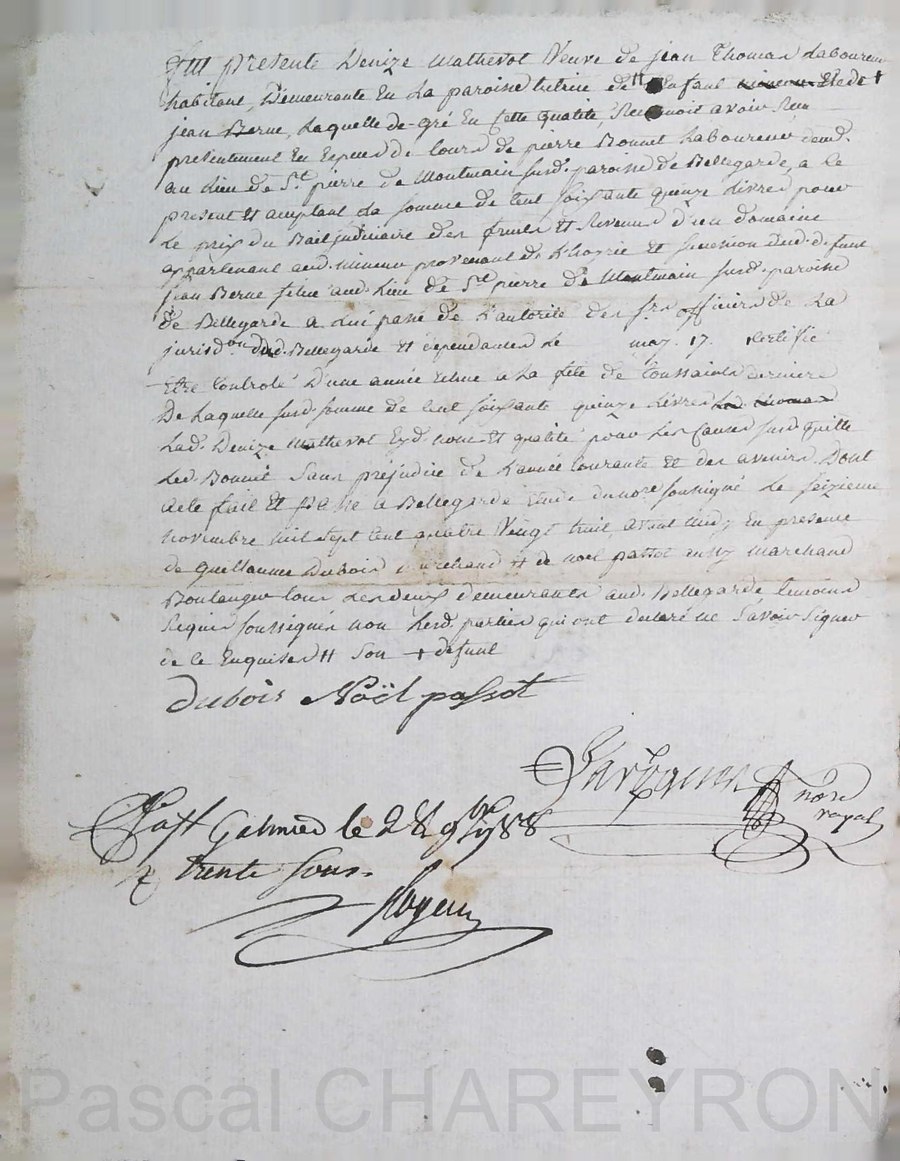 présente Denize Mathevot Veuve de jean Thomas Laboureur
habitant, Demeurante En La paroisse tutrice de # Enfant mineur de †
jean Berne, Laquelle de gré En Cette qualité, Reconnoit avoir Reçu
presentement En Especes de Cours de pierre Bonnet Laboureur demt.
au Lieu de St. pierre de Montmain susd. paroisse de Bellegarde, a ce
present Et acceptant La somme de Cent soixante quinze Livres pour
Le prix du Bail judiciaire des fruits Et Revenus d'un domaine
appartenant aud. mineur provenant de L'hoyrie Et sucession dud. defunt
jean Berne situé aud. Lieu de St. pierre de Montmain susd. paroisse
de Bellegarde a Lui passé de L'autorité des srs. officiers de La
jurisdon. dud. Bellegarde Et dependances Le may 17. Certifié
Etre Controlé D'une année Echue a La fête de Toussaints derniere
De Laquelle susd. somme de Cent soixante quinze Livres
Lad. Denize Mathevot Esd. nom Et qualité pour Les Causes susd. quitte
Led. Bonnet Sans prejudice de L'année Courante Et des avenirs. Dont
acte fait Et passé a Bellegarde Etude du nore. soussigné Le seizieme
novembre mil sept Cent quatre Vingt huit, avant midy En presence
de Guillaume Dubois marchand Et de noel passot aussy marchand
Boulanger tous Les deux demeurants aud. Bellegarde temoins
Requis soussignés non Lesd. parties qui ont declaré ne Savoir Signer
de ce Enquises # Son † defunt
Dubois Noël passot
nore
royal
a St Galmier le 28 9bre 1788
R trente Sous.
Pascal CHAREYRON